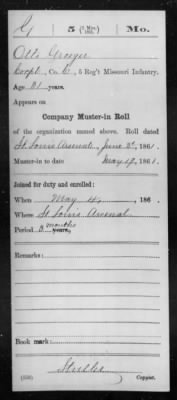 G | 5 (3 Mos. 1861.) | Mo.
Otto
Corpl., Co. C, 5 Reg't Missouri Infantry.
Age 31 years.
Appears on
Company Muster-in Roll
of the organization named above. Roll dated
St. Louis Arsenal, June 3, 1861.
Muster-in to date May 18, 1861.
Joined for duty and enrolled:
When May 4, 186 .
Where St Louis Arsenal
Period 3 months years.
Remarks:
Book mark:
(356)
Copyist.